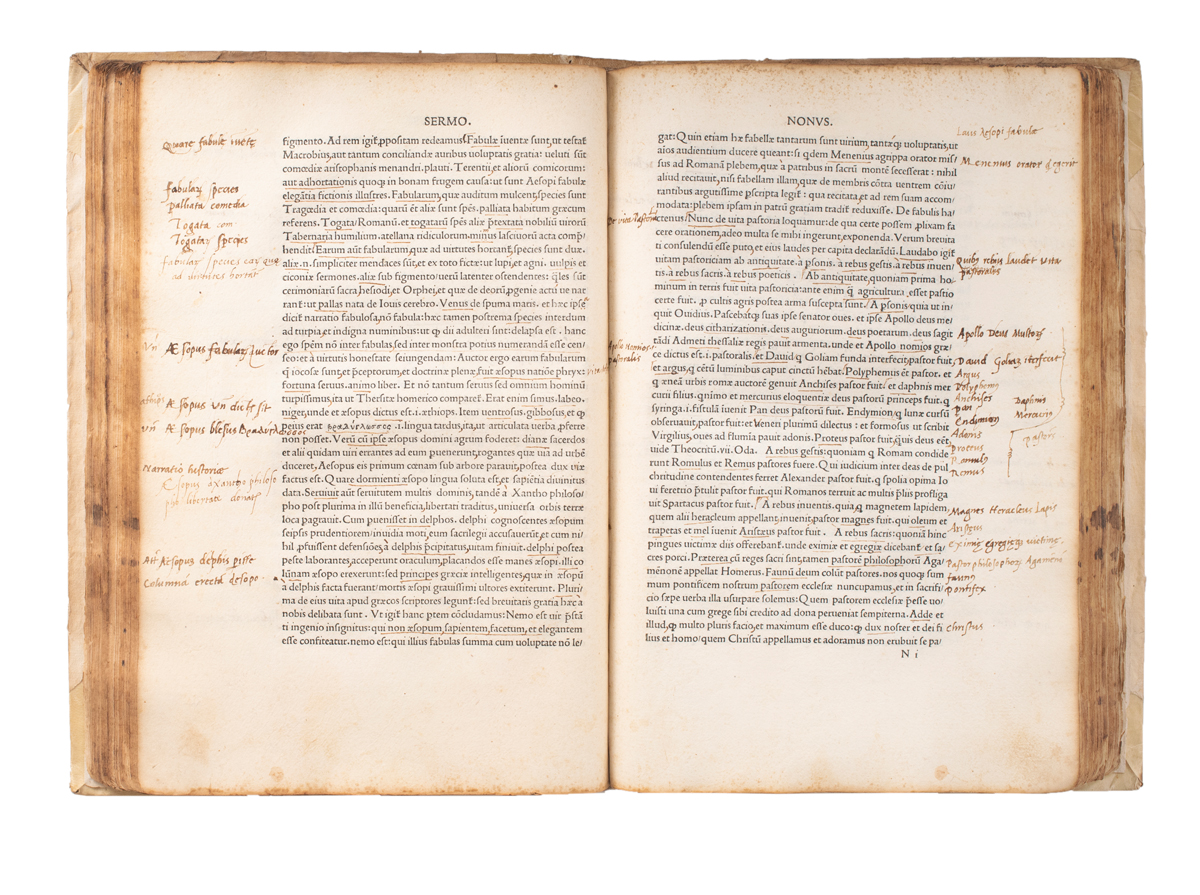 SERMO.
Quare fabule
figmento. Ad rem igit̃ ꝓpositam redeamus. Fabulæ iuentæ sunt, ut testat̃
Macrobius, aut tantum conciliandæ auribus uoluptatis gratia: ueluti sũt
comœdiæ aristophanis menandri. plauti. Terentii, et aliorũ comicorum:
aut adhortationis quoqꝫ in bonam frugem causa: ut sunt Aesopi fabulæ
elegãtia fictionis illustres. Fabularum, quæ auditum mulcent, species sunt
Tragœdia et comœdia: quarũ ẽt aliæ sunt spẽs. palliata habitum græcum
referens. Togata Romanũ. et togatarũ spẽs aliæ p̃textata nobiliũ uirorũ
Tabernaria humilium. atellana ridiculorum. minus lasciuioni acta comp̃
hendit. Earum aũt fabularum, quæ ad uirtutes horcant̃, species sunt duæ.
aliæ. n. simpliciter mendaces sũt, et ex toto fictæ: ut lupi, et agni. uulpis et
ciconiæ sermones. aliæ sub figmento uerũ latenter ostendentes: q̃les sũt
cerimoniarũ sacra, hesiodi, et Orphei, et quæ de deorũ, ꝓgenie actu ue nar
rant̃: ut pallas nata de Iouis cerebro. Venus de spuma maris. et hæc ipse
dicit̃ narratio fabulosa, nõ fabula: hæc tamen postrema species interdum
ad turpia, et indigna numinibus: ut ꝙ dii adulteri sunt: delapsa est. hanc
ego spẽm nõ inter fabulas, sed inter monstra potius numerandã esse cen
seo: et à uirtutis honestate seiungendam: Auctor ergo earum fabularum
q̃ iocosæ sunt, et p̃ceptorum, et doctrinæ plenæ, fuit æsopus natiõe phryx:
fortuna seruus. animo liber. Et nõ tantum seruus sed omnium hominũ
turpissimus, ita ut Thersitæ homerico comparet̃. Erat enim simus. labeo.
niger, unde et æsopus dictus est. i. æthiops. Item uentrosus, gibbosus, et ꝙ
peius erat βραδύγλωσσος .i. lingua tardus, ita, ut articulata uerba ꝓferre
non posset. Verũ cũ ipse æsopus domini agrum foderet: dianæ sacerdos
et alii quidam uiri errantes ad eum puenerunt, rogantes quæ uia ad urbẽ
duceret, Aesopus eis primum cœnam sub arbore parauit, postea dux uiæ
factus est. Quare dormienti æsopo lingua soluta est, et sapiẽtia diuinitus
data. Seruiuit aũt seruitutem multis dominis, tandẽ à Xantho philoso/
pho post plurima in illũ beneficia, libertati traditus, uniuersa orbis terræ
loca pagrauit. Cum puenisset in delphos. delphi cognoscentes æsopum
seipsis prudentiorem, inuidia moti, eum sacrilegii accusauerũt, et cum ni/
hil ꝓfuissent defensiões, à delphis p̃cipitatus, uitam finiuit. delphi postea
peste laborantes, acceperunt oraculum, placandos esse manes æsopi. illi co
lũnam æsopo erexerunt: sed principes græciæ intelligentes, quæ in æsopũ
à delphis facta fuerant, mortis æsopi grauissimi ultores extiterunt. Pluri/
ma de eius uita apud græcos scriptores legunt̃: sed breuitatis gratia hæc à
nobis delibata sunt. Vt igit̃ hanc ptem cõcludamus: Nemo est uir p̃stã
ti ingenio insignitus: qui non æsopum, sapientem, facetum, et elegantem
esse confiteatur. nemo est: qui illius fabulas summa cum uoluptate nõ le/
Fabularꝫ species
palliata comedia
Togata com
Togatarꝫ species
Æsopus fabularꝫ auctor
Æsopus un dictꝰ sit
Æsopus blesus
Narratio historiæ
Aesopus delphis
Columna erecta æsopo
NONVS.
gat: Quin etiam hæ fabellæ tantarum sunt uirium, tantæqꝫ uoluptatis, ut
aios audientium ducere queant: si q̃dem Menenius agrippa orator mis/
sus ad Romanã plebem, quæ à patribus in sacrũ montẽ secesserat: nihil
aliud recitauit, nisi fabellam illam, quæ de membris cõtra uentrem cõiu/
rantibus argutissime pscripta legit̃: qua recitata, et ad rem suam accom/
modata: plebem ipsam in patrũ gratiam tradit̃ reduxisse. De fabulis ha
ctenus. Nunc de uita pastoria loquamur: de qua certe possem, plixam fa
cere orationem, adeo multa se mihi ingerunt, exponenda. Verum breuita
ti consulendũ esse puto, et eius laudes per capita declarãdũ. Laudabo igit̃
uitam pastoriciam ab antiquitate. à psonis. à rebus gestis. à rebus inuen
tis. à rebus sacris. à rebus poeticis. Ab antiquitate, quoniam prima ho/
minum in terris fuit uita pastoricia: ante enim q̃ agricultura, esset pastio
certe fuit. ꝓ cultis agris postea arma suscepta sunt. A psonis quia ut in/
quit Ouidius. Pascebatqꝫ suas ipse senator oues. et ipse Apollo deus me/
dicinæ. deus citharizationis. deus auguriorum. deus poetarum. deus sagit
tãdi Admeti thessaliæ regis pauit armenta. unde et Apollo nomios græ
ce dictus est. i. pastoralis. et Dauid q Goliam funda interfecit, pastor fuit
et argus, q cẽtũ luminibus caput cinctũ hẽbat. Polyphemus ẽt pastor. et
q ænea urbis romæ auctorẽ genuit Anchises pastor fuit. et daphnis mer
curii filius. qnimo et mercurius eloquentiæ deus pastorũ princeps fuit. q
syringa. i. fistulã iuenit Pan deus pastorũ fuit. Endymion q lunæ cursũ
obseruauit, pastor fuit: et Veneri plurimũ dilectus: et formosus ut scribit
Virgilius, oues ad flumia pauit adonis. Proteus pastor fuit, q̃uis deus eẽt,
uide Theocritũ. vii. Oda. A rebus gestis: quoniam q Romam condide
runt Romulus et Remus pastores fuere. Qui iudicium inter deas de pul
chritudine contendentes ferret Alexander pastor fuit. q spolia opima Io
ui feretrio p̃tulit pastor fuit. qui Romanos terruit ac multis p̃liis profliga
uit Spartacus pastor fuit. A rebus inuentis. quia q magnetem lapidem,
quem alii heracleum appellant, inuenit, pastor magnes fuit. qui oleum et
trapetas et mel iuenit Aristæus pastor fuit. A rebus sacris: quoniã hinc
pingues uictimæ diis offerebant̃. unde eximiæ et egregiæ dicebant̃ et sa/
cres porci. Præterea cũ reges sacri sint, tamen pastorẽ philosophorũ Aga
menonẽ appellat Homerus. Faunũ deum colũt pastores. nos quoqꝫ sum
mum pontificem nostrum pastorem ecclesiæ nuncupamus, et in sacrifi/
cio sæpe uerba illa usurpare solemus: Quem pastorem ecclesiæ p̃esse uo/
luisti una cum grege sibi credito ad dona perueniat sempiterna. Adde et
illud, ꝙ multo pluris facio, et maximum esse duco: ꝙ dux noster et dei fi
lius et homo: quem Christũ appellamus et adoramus non erubuit se pa/
N i
Laus Aesopi fabulæ
Menenius orator
Quibꝫ rebus laudet uita
pastoralis
Apollo Deus
David Goliaz
Argus
Polyphemꝰ
Anchises
Daphnis
pan
Mercuriꝰ
Endimion
Adonis
proteus
Romulꝰ
Remus
pastores
Magnes Heracleus Lapis
Aristeus
Pastor philosophorꝫ
faunꝰ
pontifex
Christus